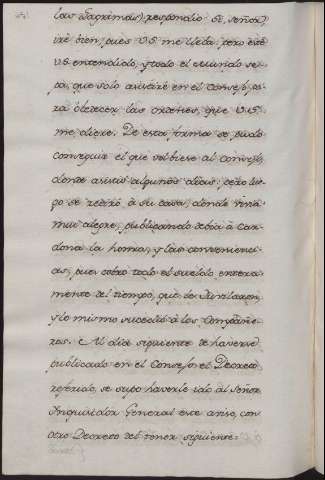 las Lagrimas, respondio: Si, señor,
irè bien, pues V.S. me lleba, pero estè
V.S. entendido, y todo el mundo se-
pa, que solo asistirè en el Consejo, pa-
ra obedecer las ordenes, que V.S.
me diere. De esta forma se pudo
conseguir el que volbiese al Consejo,
donde asistiò algunos dias; pero lue-
go se retirò à su casa, donde vivia
mui alegre, publicando debia à Car-
dona la honra, y las convenienci-
as, pues cobrò todo el sueldo entera-
mente del tiempo, que se Jubilaron,
y lo mismo sucediò à los Compañe-
ros. Al dia siguiente de haverse
publicado en el Consejo el Decreto
referido, se supo haverle ido al Señor
Inquisidor General este aviso, con
otro Decreto del tenor siguiente.